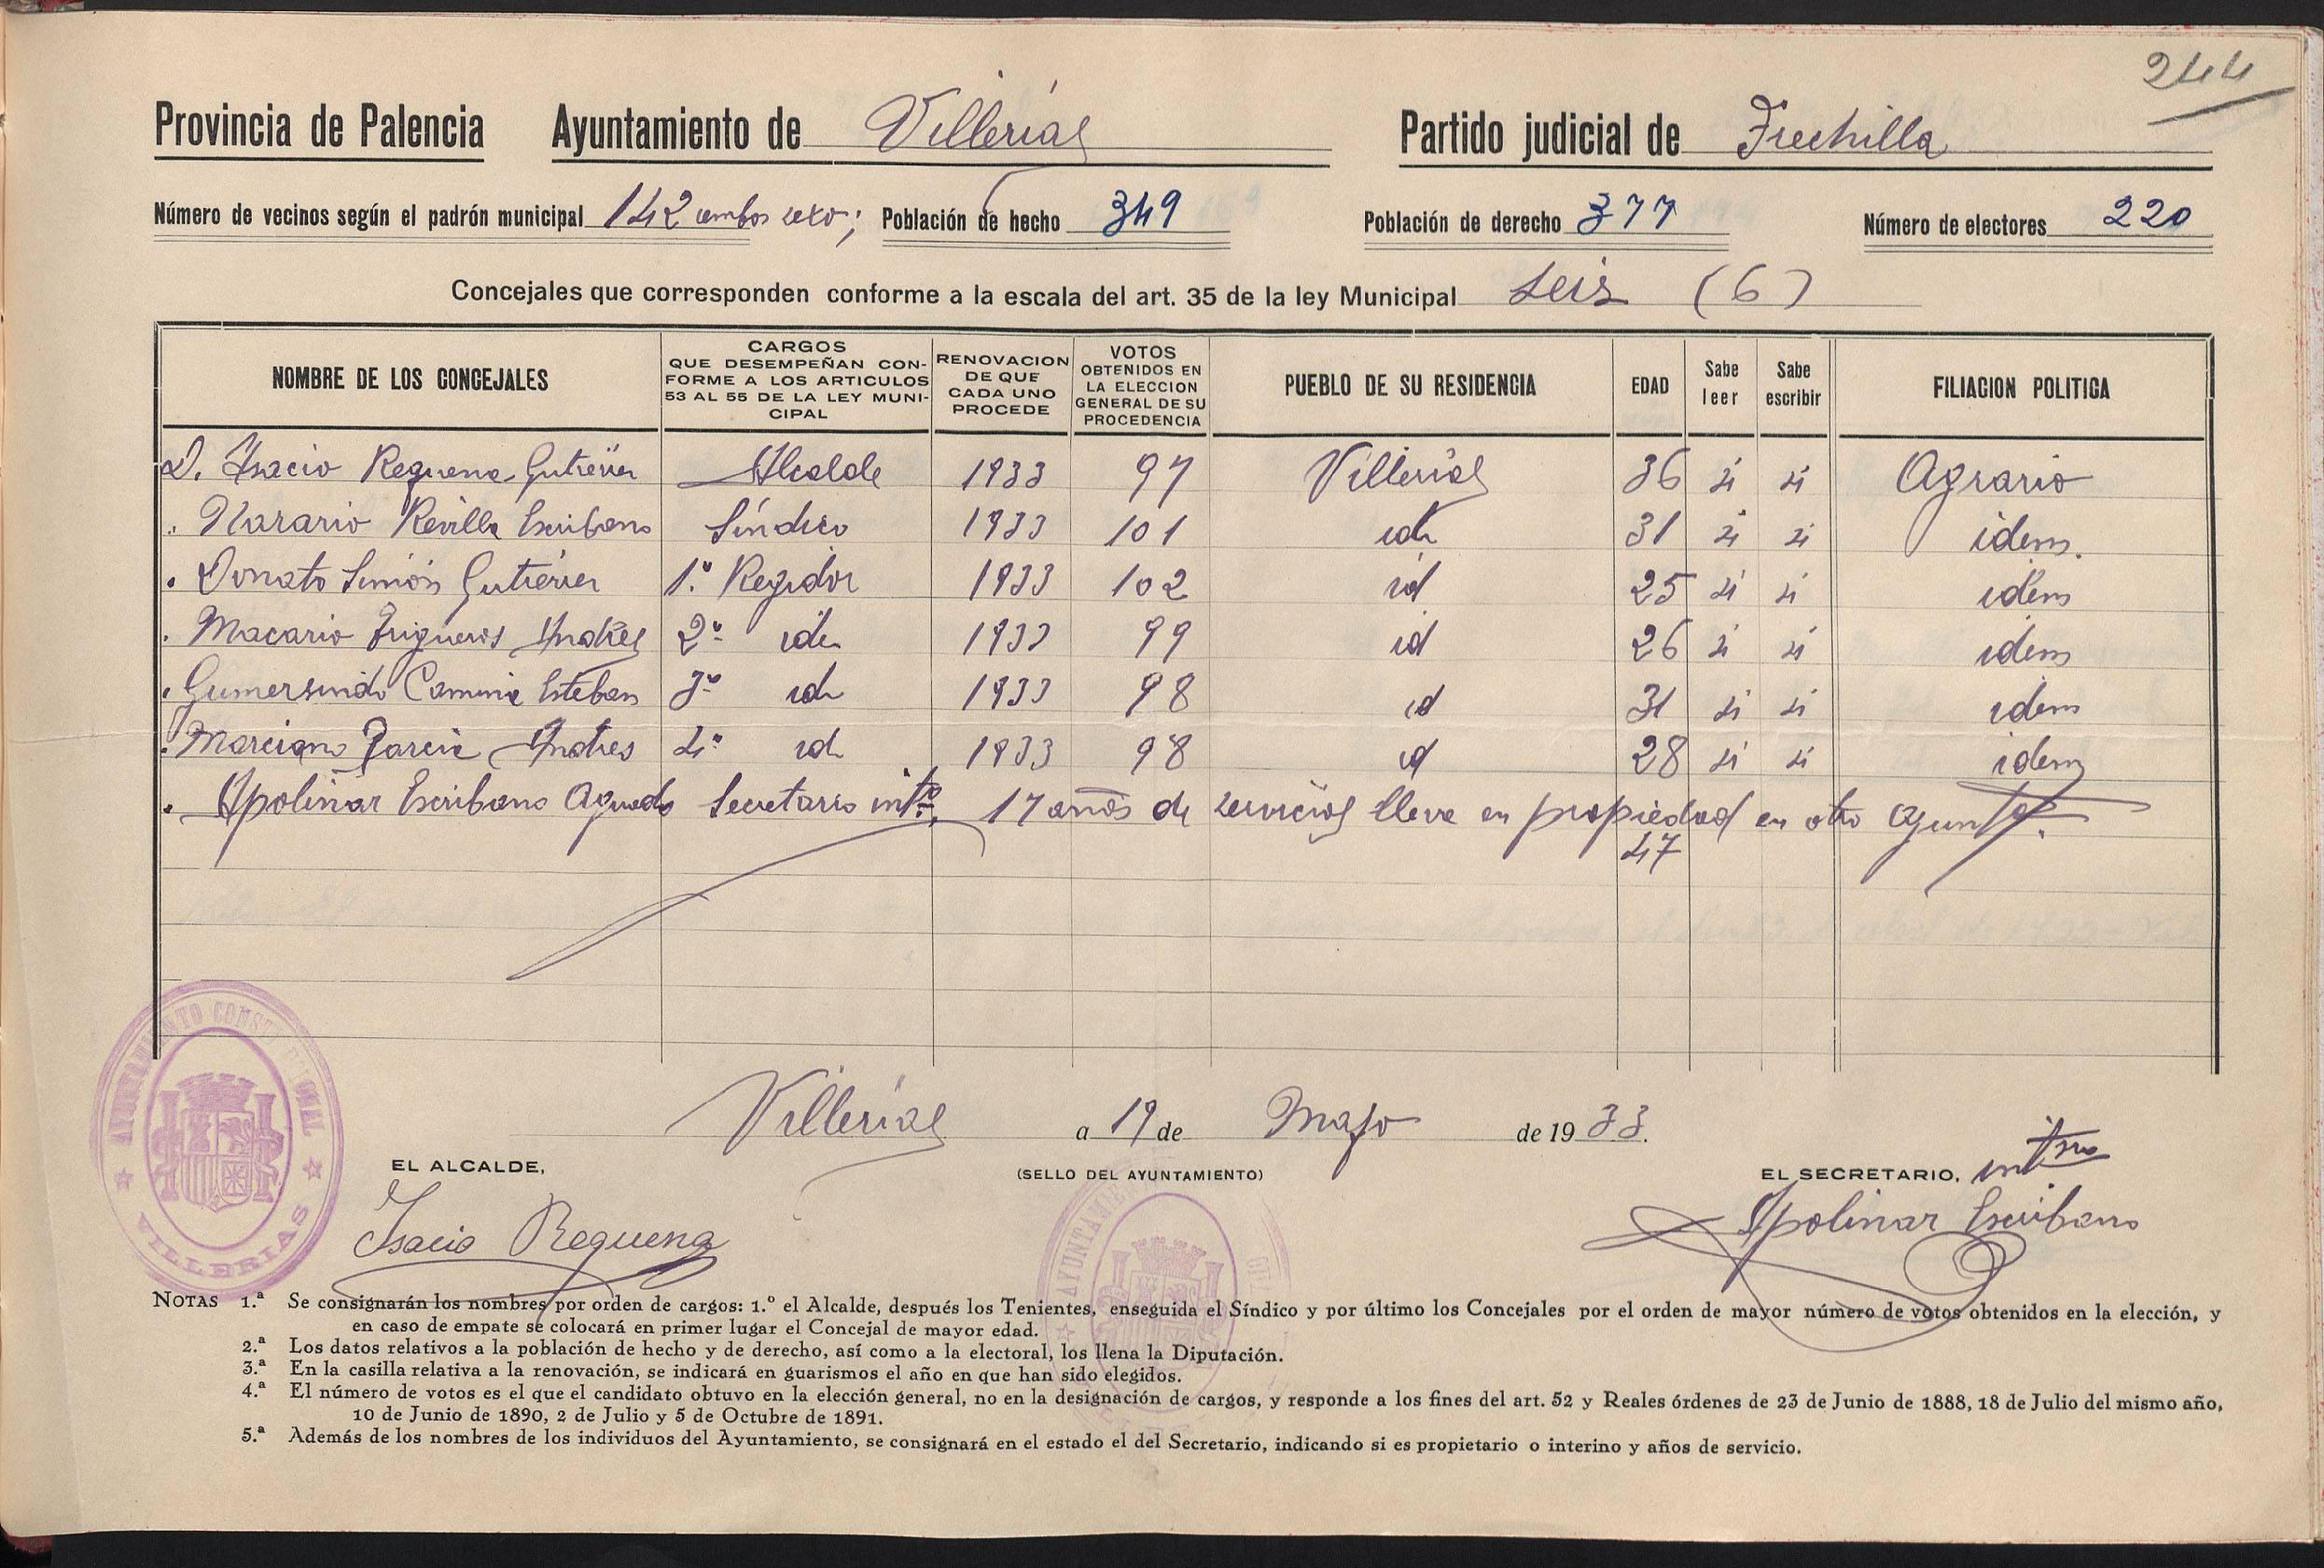 244
Provincia de Palencia Ayuntamiento de Villerías Partido judicial de Frechilla
Número de vecinos según el padrón municipal 142 ambos sexo; Población de hecho 349 Población de derecho 377 Número de electores 220
Concejales que corresponden conforme a la escala del art. 35 de la ley Municipal Seis (6)
NOMBRE DE LOS CONCEJALES CARGOS QUE DESEMPEÑAN CONFORME A LOS ARTICULOS 53 AL 55 DE LA LEY MUNICIPAL RENOVACION DE QUE CADA UNO PROCEDE VOTOS OBTENIDOS EN LA ELECCION GENERAL DE SU PROCEDENCIA PUEBLO DE SU RESIDENCIA EDAD Sabe leer Sabe escribir FILIACION POLITICA
D. Isacio Requena Gutiérrez Alcalde 1933 97 Villerías 36 si si Agrario
. Nazario Revilla Escribano Síndico 1933 101 id 31 si si idem.
. Donato Simón Gutiérrez 1.º Regidor 1933 102 id 25 si si idem
. Macario Trigueros Andrés 2º id 1933 99 id 26 si si idem
. Gumersindo Camina Esteban 3º id 1933 98 id 31 si si idem
. Marciano García Andres 4º id 1933 98 id 28 si si idem
. Apolinar Escribano Aguado Secretario intº. 17 años de servicios lleva en propiedad en otro Ayuntº.
47
Villerías a 19 de Mayo de 1933.
EL ALCALDE, (SELLO DEL AYUNTAMIENTO) EL SECRETARIO, intno
Isacio Requena Apolinar Escribano
AYUNTAMIENTO CONSTITUCIONAL
VILLERIAS
NOTAS 1.ª Se consignarán los nombres por orden de cargos: 1.º el Alcalde, después los Tenientes, enseguida el Síndico y por último los Concejales por el orden de mayor número de votos obtenidos en la elección, y
en caso de empate se colocará en primer lugar el Concejal de mayor edad.
2.ª Los datos relativos a la población de hecho y de derecho, así como a la electoral, los llena la Diputación.
3.ª En la casilla relativa a la renovación, se indicará en guarismos el año en que han sido elegidos.
4.ª El número de votos es el que el candidato obtuvo en la elección general, no en la designación de cargos, y responde a los fines del art. 52 y Reales órdenes de 23 de Junio de 1888, 18 de Julio del mismo año,
10 de Junio de 1890, 2 de Julio y 5 de Octubre de 1891.
5.ª Además de los nombres de los individuos del Ayuntamiento, se consignará en el estado el del Secretario, indicando si es propietario o interino y años de servicio.